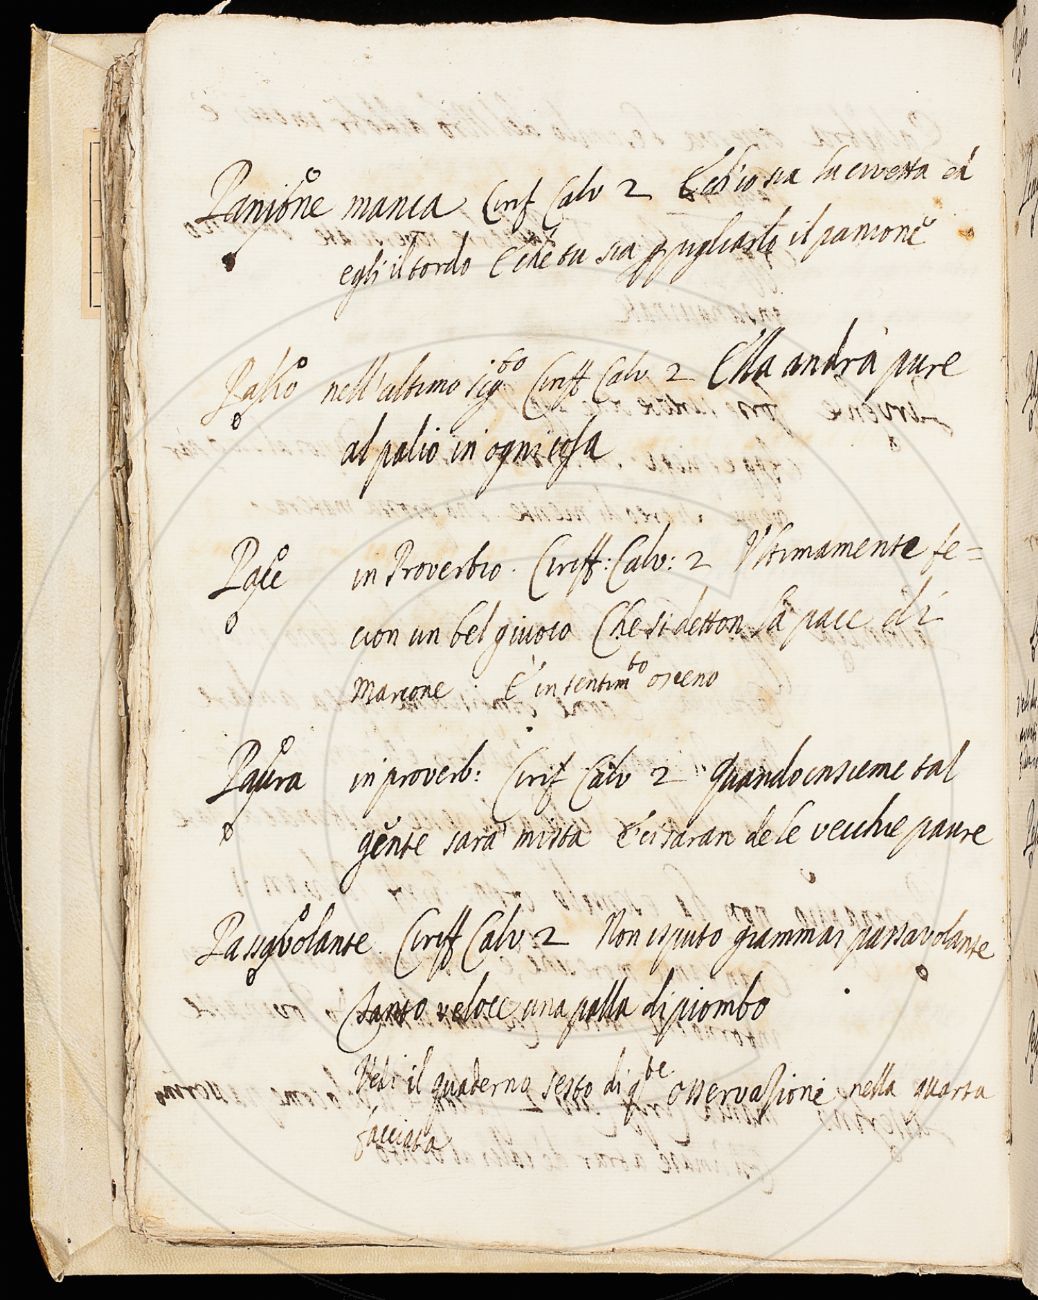 Panione manca Cirif Calv 2 Ched io sia la civetta ed
egli il tordo E che tu sia per pigliarlo il panione
Palio nell'ultimo sig.to Ciriff Calv. 2 Ella andrà pure
al palio in ogni cosa
Pace in Proverbio. Ciriff: Calv: 2 Ultimamente fe=
cion un bel giuoco Che si detton la pace di
Marcone. E' in sentim.to osceno
Paura in proverb: Cirif Calv 2 Quando insieme tal
gente sarà mista E' ci saran de le vecchie paure
Passavolante Ciriff Calv: 2 Non isputo giammai passavolante
Tanto veloce una palla di piombo
Vedi il quaderno sesto di q.te osservazioni nella quarta
facciata